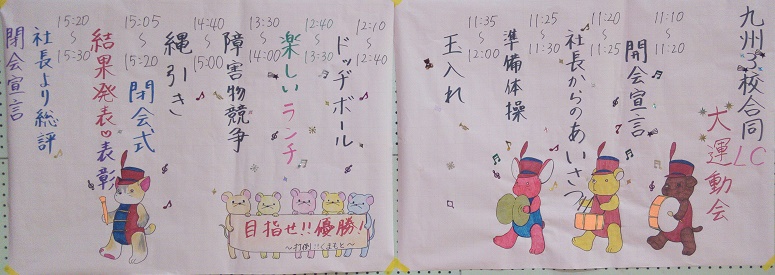 九州3校合同LC
大運動会
11:10〜11:20
開会宣言
11:20〜11:25
社長からのあいさつ
11:25〜11:30
準備体操
11:35〜12:00
玉入れ
12:10〜12:40
ドッヂボール
12:40〜13:30
楽しいランチ
13:30〜14:00
障害物競争
14:40〜15:00
縄引き
15:05〜15:20
閉会式
結果発表♡表彰
15:20〜15:30
社長より総評
閉会宣言
目指せ!!優勝!
〜打倒!くまもと〜